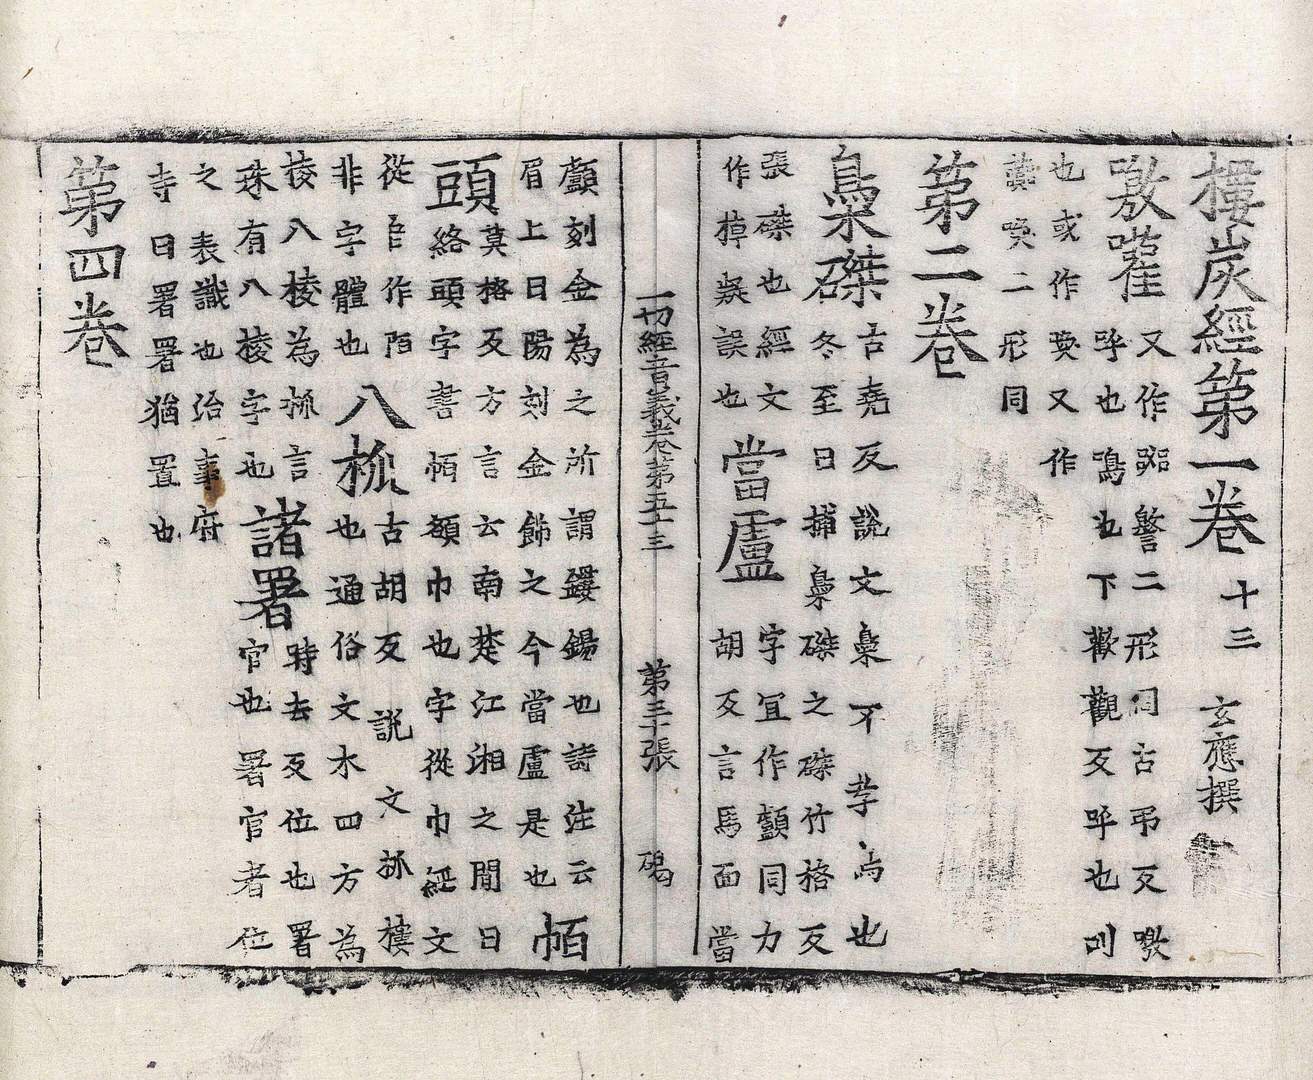 樓炭經第一卷 十三 玄應撰
噭嚾 又作㗊警二形同古弔反噭
呼也鳴也下歡觀反呼也叫
也或作喚又作
讙㗋二形同
第二卷
梟磔 古堯反說文梟不孝鳥也
冬至日捕梟磔之磔竹格反
張磔也經文
作㯝誤也
當盧 字宜作顱同力
胡反言馬面當
一切經音義卷第五十三 第三十張 碣
顱刻金為之所謂鏤鍚也詩注云
眉上曰陽刻金飾之今當盧是也
帞
頭 莫格反方言云南楚江湘之間曰
絡頭字書帞額巾也字從巾經文
從𨸏作陌
非字體也
八柧 古胡反說文柧棱
也通俗文木四方為
棱八棱為柧言
珠有八棱字也
諸署 時去反位也署
官也署官者位
之表識也治事府
寺曰署署猶置也
第四卷